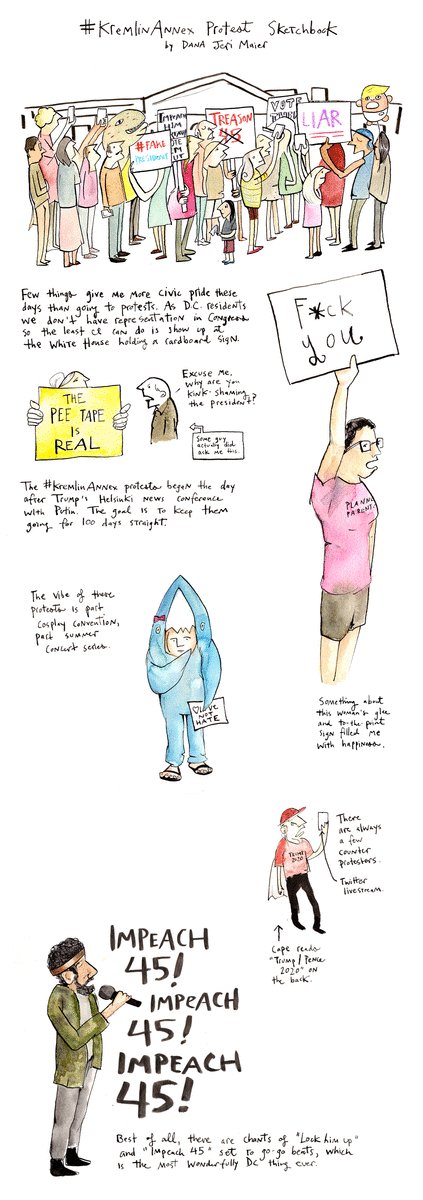 #KremlinAnnex Protest Sketchbook
by DANA Jeri Maier
IMPEACH
HIM
TREASON
45
VOTE
LIAR
#FAKE
PRESIDENT
Few things give me more civic pride these
days than going to protests. As D.C. residents
we don't have representation in Congress
so the least we can do is show up at
the White House holding a cardboard sign.
F*ck
you
THE
PEE TAPE
IS
REAL
Excuse me,
why are you
kink-shaming
the president?
Some guy
actually did
ask me this.
PLANNED
PARENT
The #KremlinAnnex protests began the day
after Trump's Helsinki News conference
with Putin. The goal is to keep them
going for 100 days straight.
The vibe of these
protests is part
cosplay convention,
part summer
concert series.
LOVE
NOT
HATE
Something about
this woman's glee
and to-the-point
sign filled me
with happiness.
There
are always
a few
counter
protestors.
TRUMP
2020
Twitter
livestream.
Cape reads
"Trump/Pence
2020" on
the back.
IMPEACH
45!
IMPEACH
45!
IMPEACH
45!
Best of all, there are chants of "Lock him up"
and "Impeach 45" set to go-go beats, which
is the most wonderfully DC thing ever.